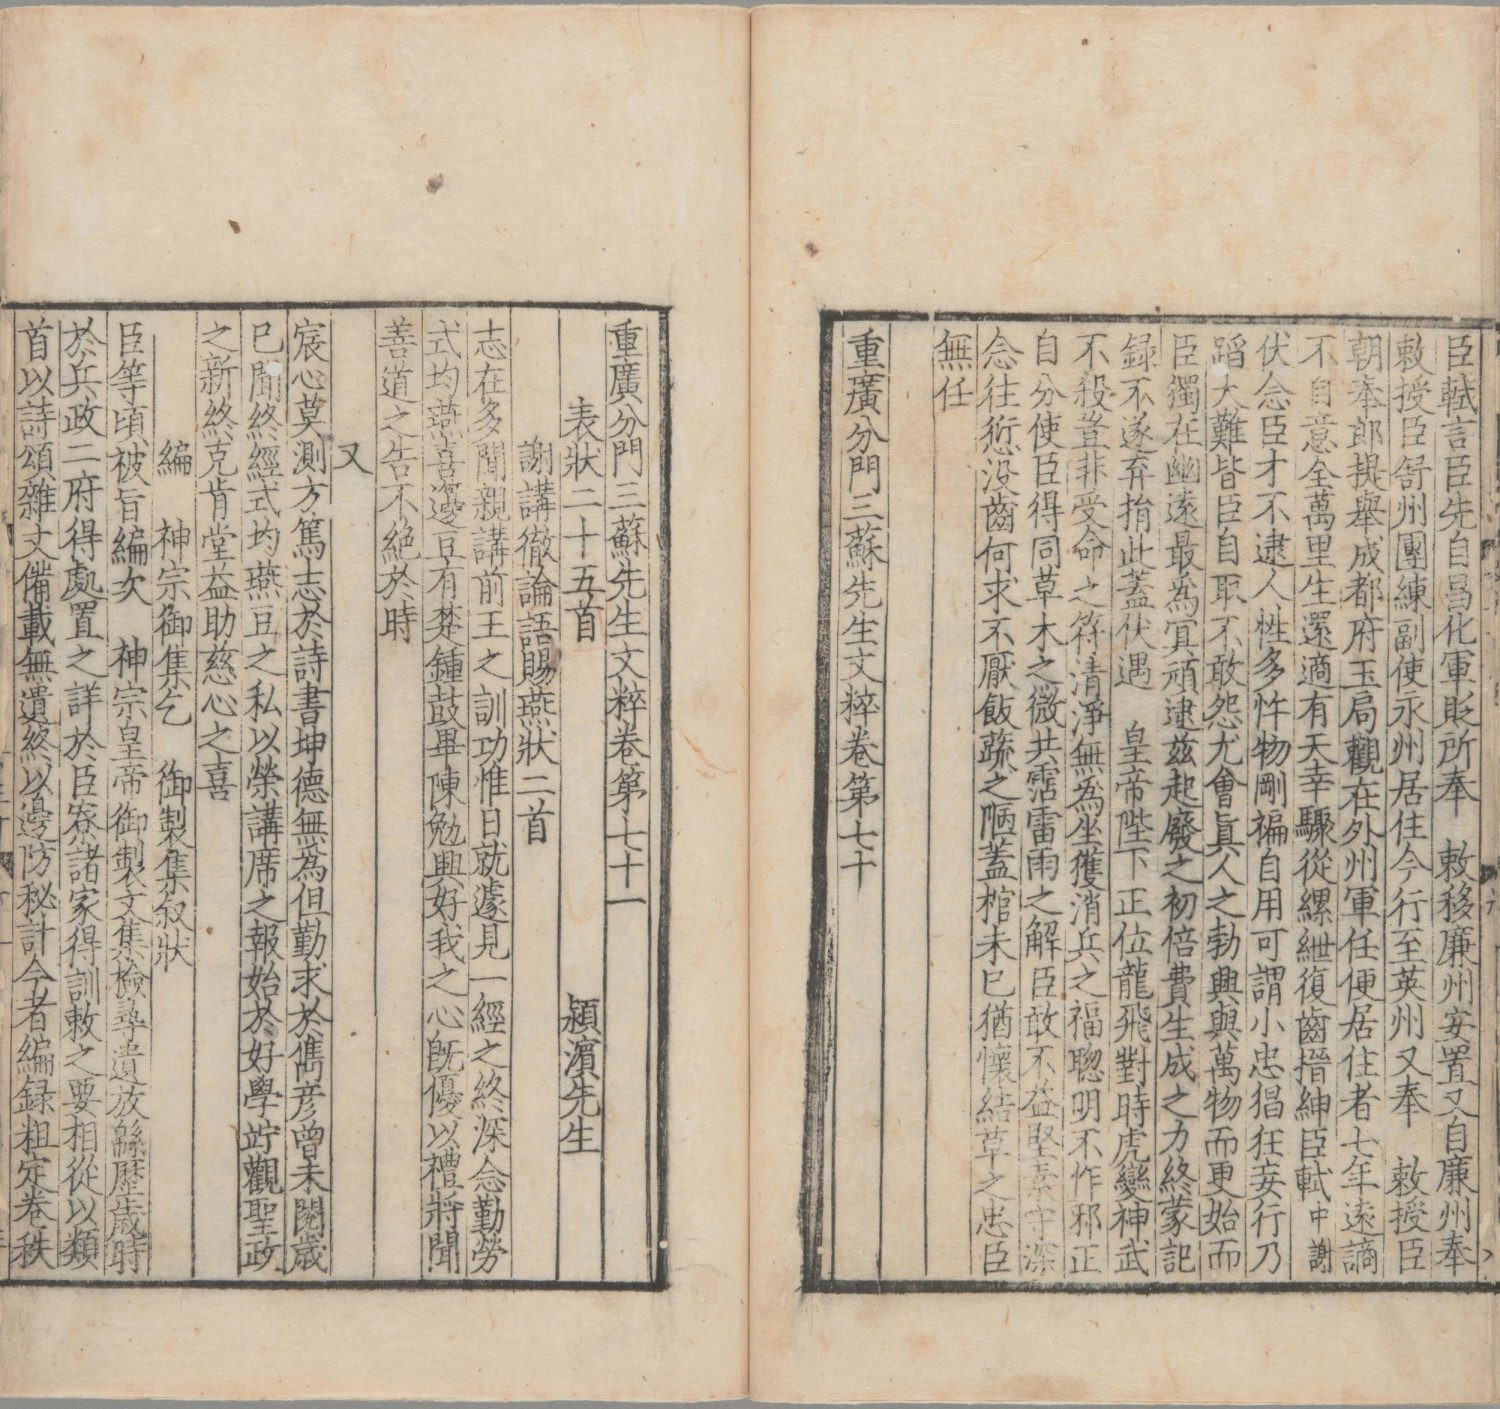 臣軾言臣先自昌化軍貶所奉 敕移廉州安置又自廉州奉
敕授臣舒州團練副使永州居住今行至英州又奉 敕授臣
朝奉郎提舉成都府玉局觀在外州軍任便居住者七年遠謫
不自意全萬里生還適有天幸驟從縲紲復齒搢紳臣軾中謝
伏念臣才不逮人性多忤物剛褊自用可謂小忠猖狂妄行乃
蹈大難皆臣自取不敢怨尤會眞人之勃興與萬物而更始而
臣獨在幽遠最爲冥頑逮兹起廢之初倍費生成之力終蒙記
録不遂弃捐此蓋伏遇 皇帝陛下正位龍飛對時虎變神武
不殺豈非受命之符清淨無爲坐獲消兵之福聰明不作邪正
自分使臣得同草木之微共霑雷雨之解臣敢不益堅素守深
念往愆没齒何求不厭飯蔬之陋蓋棺未已猶懷結草之忠臣
無任
重廣分門三蘇先生文粹卷第七十
重廣分門三蘇先生文粹卷第七十一
表狀二十五首 潁濵先生
謝講徹論語賜燕狀二首
志在多聞親講前王之訓功惟日就遽見一經之終深念勤勞
式均燕喜籩豆有莽鍾鼓畢陳勉興好我之心旣優以禮將聞
善道之告不絶於時
又
宸心莫測方篤志於詩書坤德無爲但勤求於雋彦曾未閲歲
已聞終經式均燕豆之私以榮講席之報始於好學竚觀聖政
之新終克肯堂益助慈心之喜
編 神宗御集乞 御製集叙狀
臣等頃被旨編次 神宗皇帝御製文集撿尋遺放緜歷歲時
於兵政二府得處置之詳於臣寮諸家得訓敕之要相從以類
首以詩頌雜文備載無遺終以邊防秘計今者編録粗定卷秩